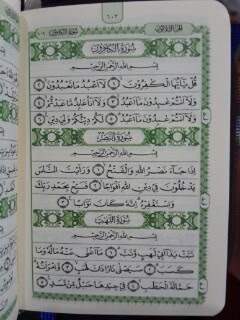 الجزء الثلاثون ٦٠٣ سورة الكافرون
سورة الكافرون
بسم الله الرحمن الرحيم
قل يأيها الكفرون ١ لا أعبد ما تعبدون ٢
ولا أنتم عبدون ما أعبد ٣ ولا أنا عابد ما عبدتم ٤
ولا أنتم عبدون ما أعبد ٥ لكم دينكم ولي دين ٦
سورة النصر
بسم الله الرحمن الرحيم
إذا جاء نصر الله والفتح ١ ورأيت الناس
يدخلون في دين الله أفواجا ٢ فسبح بحمد ربك
واستغفره إنه كان توابا ٣
سورة اللهب
بسم الله الرحمن الرحيم
تبت يدا أبي لهب وتب ١ ما أغنى عنه ماله وما
كسب ٢ سيصلى نارا ذات لهب ٣ وامرأته
حمالة الحطب ٤ في جيدها حبل من مسد ٥